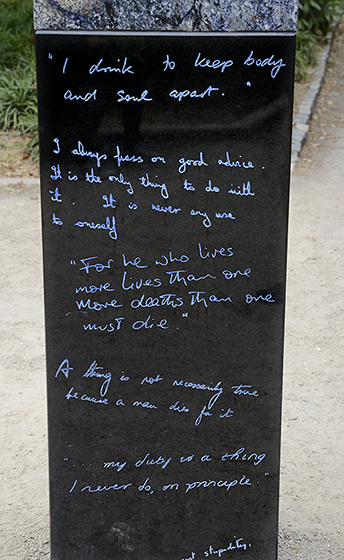 "I drink to keep body
and soul apart."
I always pass on good advice.
It is the only thing to do with
it. It is never any use
to oneself
"For he who lives
more lives than one
More deaths than one
must die."
A thing is not necessarily true
because a man dies for it
"... my duty is a thing
I never do, on principle."
stupidity.